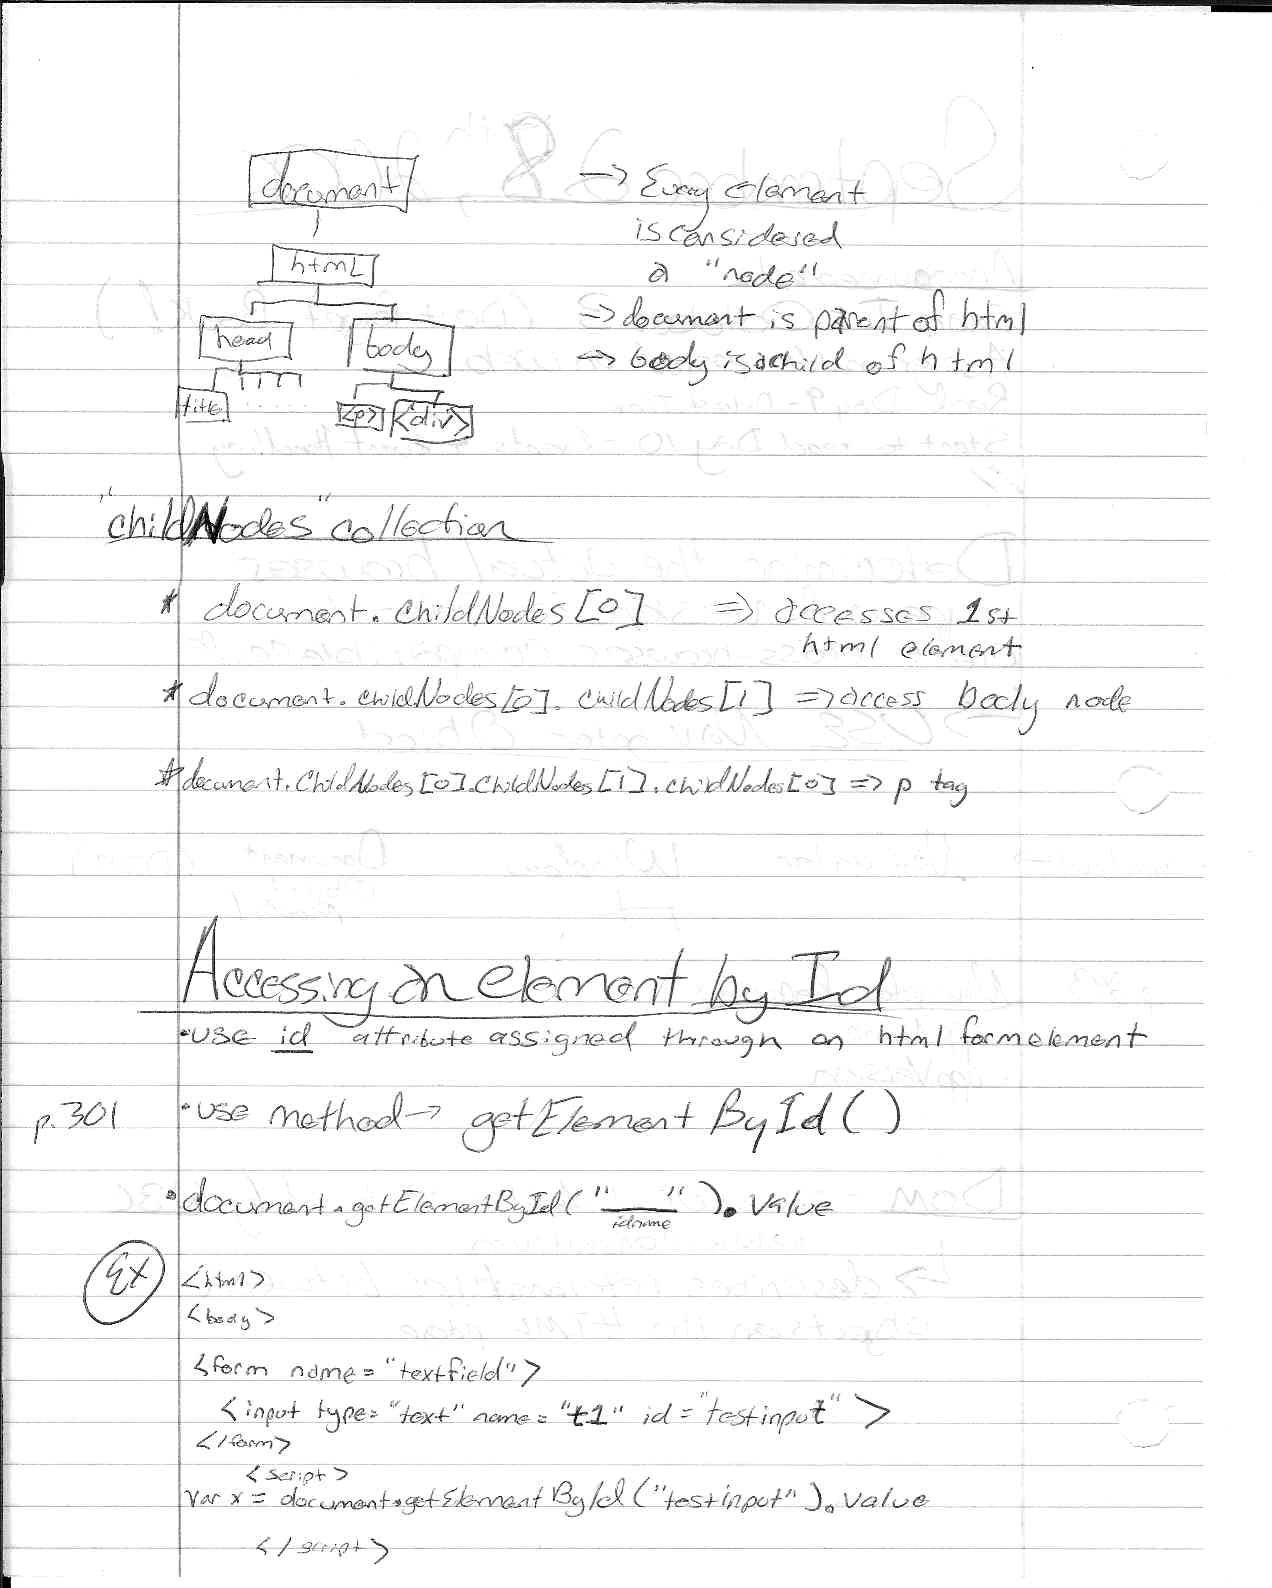 document
→ Every element
is considered
a "node"
html
→ document is parent of html
head
body
→ body is a child of html
title
.....
<p>
<div>
"childNodes" collection
* document.childNodes[0] => accesses 1st
html element
* document.childNodes[0].childNodes[1] => access body node
* document.ChildNodes[0].ChildNodes[1].childNodes[0] => p tag
Accessing an element by Id
•use id attribute assigned through an html form element
p.301
•use method → getElementById()
•document.getElementById("____").value
idname
Ex
<html>
<body>
<form name="textfield">
<input type="text" name="t1" id="testinput">
</form>
<script>
var x = document.getElementById("testinput").value
</script>